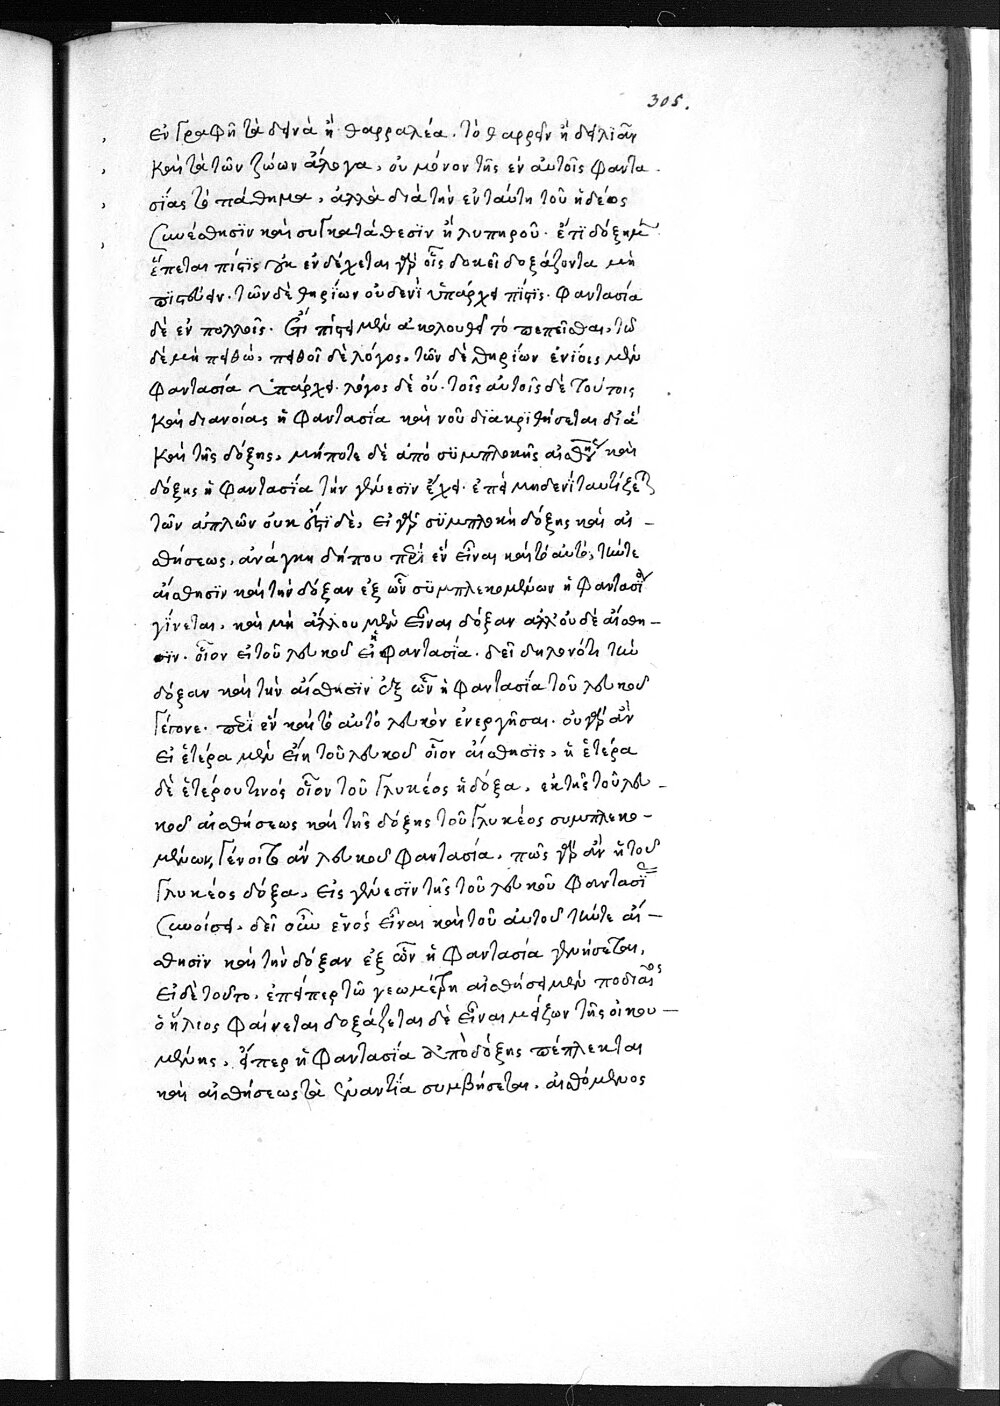 305.
ἐν γραφῇ τὰ δεινὰ ἢ θαρραλέα. τὸ θαρρεῖν ἢ δειλιᾶν
καὶ τὰ τῶν ζώων ἄλογα, οὐ μόνον τῆς ἐν αὐτοῖς φαντα
σίας τὸ πάθημα, ἀλλὰ διὰ τὴν ἐν ταύτῃ τοῦ ἡδέως
συναίσθησϊν καὶ συγκατάθεσϊν ἢ λυπηροῦ. ἔτϊ δόξῃ μὲν
ἕπεται πίστϊς οὐκ ἐνδέχεται γὰρ οἷς δοκεῖ δοξάζοντα μὴ
πϊστεύειν. τῶν δὲ θηρΐων οὐδενὶ ὑπάρχει πΐστϊς. φαντασία
δὲ ἐν πολλοῖς. ἔτι πίστει μὲν ἀκολουθεῖ τὸ πεπεῖσθαι, τῷ
δὲ μὴ πειθώ, πειθοῖ δὲ λόγος, τῶν δὲ θηρΐων ἐνίοις μὲν
φαντασία ὑπάρχει. λόγος δὲ οὔ. τοῖς αὐτοῖς δὲ τούτοις
καὶ διανοίας ἡ φαντασία καὶ νοῦ διακριθήσεται διὰ
καὶ τῆς δόξης, μήποτε δὲ ἀπὸ συμπλοκῆς αἰσθήσεως καὶ
δόξης ἡ φαντασΐα τὴν γένεσϊν ἔχει. ἐπεὶ μηδενὶ ταυτίζεται
τῶν ἁπλῶν οὐκ ἔστϊ δὲ, εἰ γὰρ συμπλοκὴ δόξης καὶ αἰ-
σθήσεως, ἀνάγκη δήπου περὶ ἓν εἶναι καὶ τὸ αὐτό, τήν τε
αἴσθησϊν καὶ τὴν δόξαν ἐξ ὧν συμπλεκομένων ἡ φαντασία
γίνεται, καὶ μὴ ἄλλου μὲν εἶναι δόξαν ἄλλου δὲ αἴσθη-
σϊν. οἷον εἰ τοῦ λευκοῦ εἴη ἡ φαντασία. δεῖ δηλονότι τὴν
δόξαν καὶ τὴν αἴσθησϊν ἐξ ὧν ἡ φαντασία τοῦ λευκοῦ
γέγονε. περὶ ἓν καὶ τὸ αὐτὸ λευκὸν ἐνεργῆσαι. οὐ γὰρ ἂν
εἰ ἑτέρα μὲν εἴη τοῦ λευκοῦ οἷον αἴσθησϊς, ἡ ἑτέρα
δὲ ἑτέρου τινός οἷον τοῦ γλυκέος ἡ δόξα, ἐκ τῆς τοῦ λευ-
κοῦ αἰσθήσεως καὶ τῆς δόξης τοῦ γλυκέος συμπλεκο-
μένων, γένοιτο ἂν λευκοῦ φαντασία. πῶς γὰρ ἂν ἡ τοῦ
γλυκέος δόξα, εἰς γένεσϊν τῆς τοῦ λευκοῦ φαντασίας
συνοίσει, δεῖ οὖν ἑνὸς εἶναι καὶ τοῦ αὐτοῦ τήν τε αἴ-
σθησϊν καὶ τὴν δόξαν ἐξ ὧν ἡ φαντασία γεννήσεται,
εἰ δὲ τοῦτο, ἐπείπερ τῷ γεωμέτρῃ αἰσθήσει μὲν ποδιαῖος
ὁ ἥλιος φαίνεται δοξάζεται δὲ εἶναι μείζων τῆς οἰκου-
μένης, εἴπερ ἡ φαντασΐα ἀπὸ δόξης πέπλεκται
καὶ αἰσθήσεως τὰ ἐναντΐα συμβήσεται. αἰσθόμενος